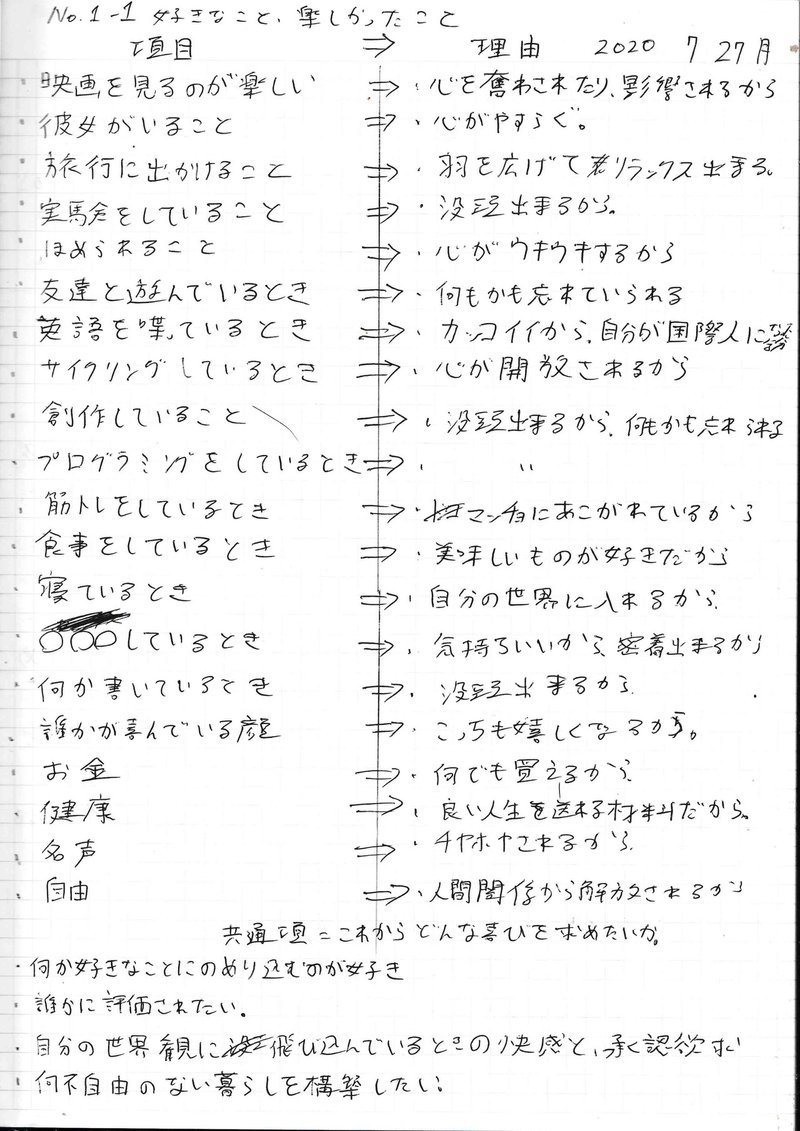 No.1-1 好きなこと、楽しかったこと
項目 ⇒ 理由 2020 7 27月
・映画を見るのが楽しい ⇒ ・心を奪わされたり、影響されるから
・彼女がいること ⇒ ・心がやすらぐ。
・旅行に出かけること ⇒ ・羽を広げてリラックス出来る。
・実験をしていること ⇒ ・没頭出来るから。
・ほめられること ⇒ ・心がウキウキするから
・友達と遊んでいるとき ⇒ ・何もかも忘れていられる
・英語を喋ているとき ⇒ ・カッコイイから、自分が国際人に
・サイクリングしているとき ⇒ ・心が開放されるから
・創作していること ⇒ ・没頭出来るから、何もかも忘れられる
・プログラミングをしているとき ⇒ ・ 〃
・筋トレをしているとき ⇒ ・マッチョにあこがれているから
・食事をしているとき ⇒ ・美味しいものが好きだから
・寝ているとき ⇒ ・自分の世界に入れるから、
・〇〇〇しているとき ⇒ ・気持ちいいから、密着出来るから
・何か書いているとき ⇒ ・没頭出来るから、
・誰かが喜んでいる顔 ⇒ ・こっちも嬉しくなるから。
・お金 ⇒ ・何でも買えるから、
・健康 ⇒ ・良い人生を送れる材料だから。
・名声 ⇒ ・チヤホヤされるから、
・自由 ⇒ ・人間関係から解放されるから
共通項=これからどんな喜びを求めたいか。
・何か好きなことにのめり込むのが好き
・誰かに評価されたい。
・自分の世界観に飛び込んでいるときの快感と、承認欲求
・何不自由のない暮らしを構築したい。